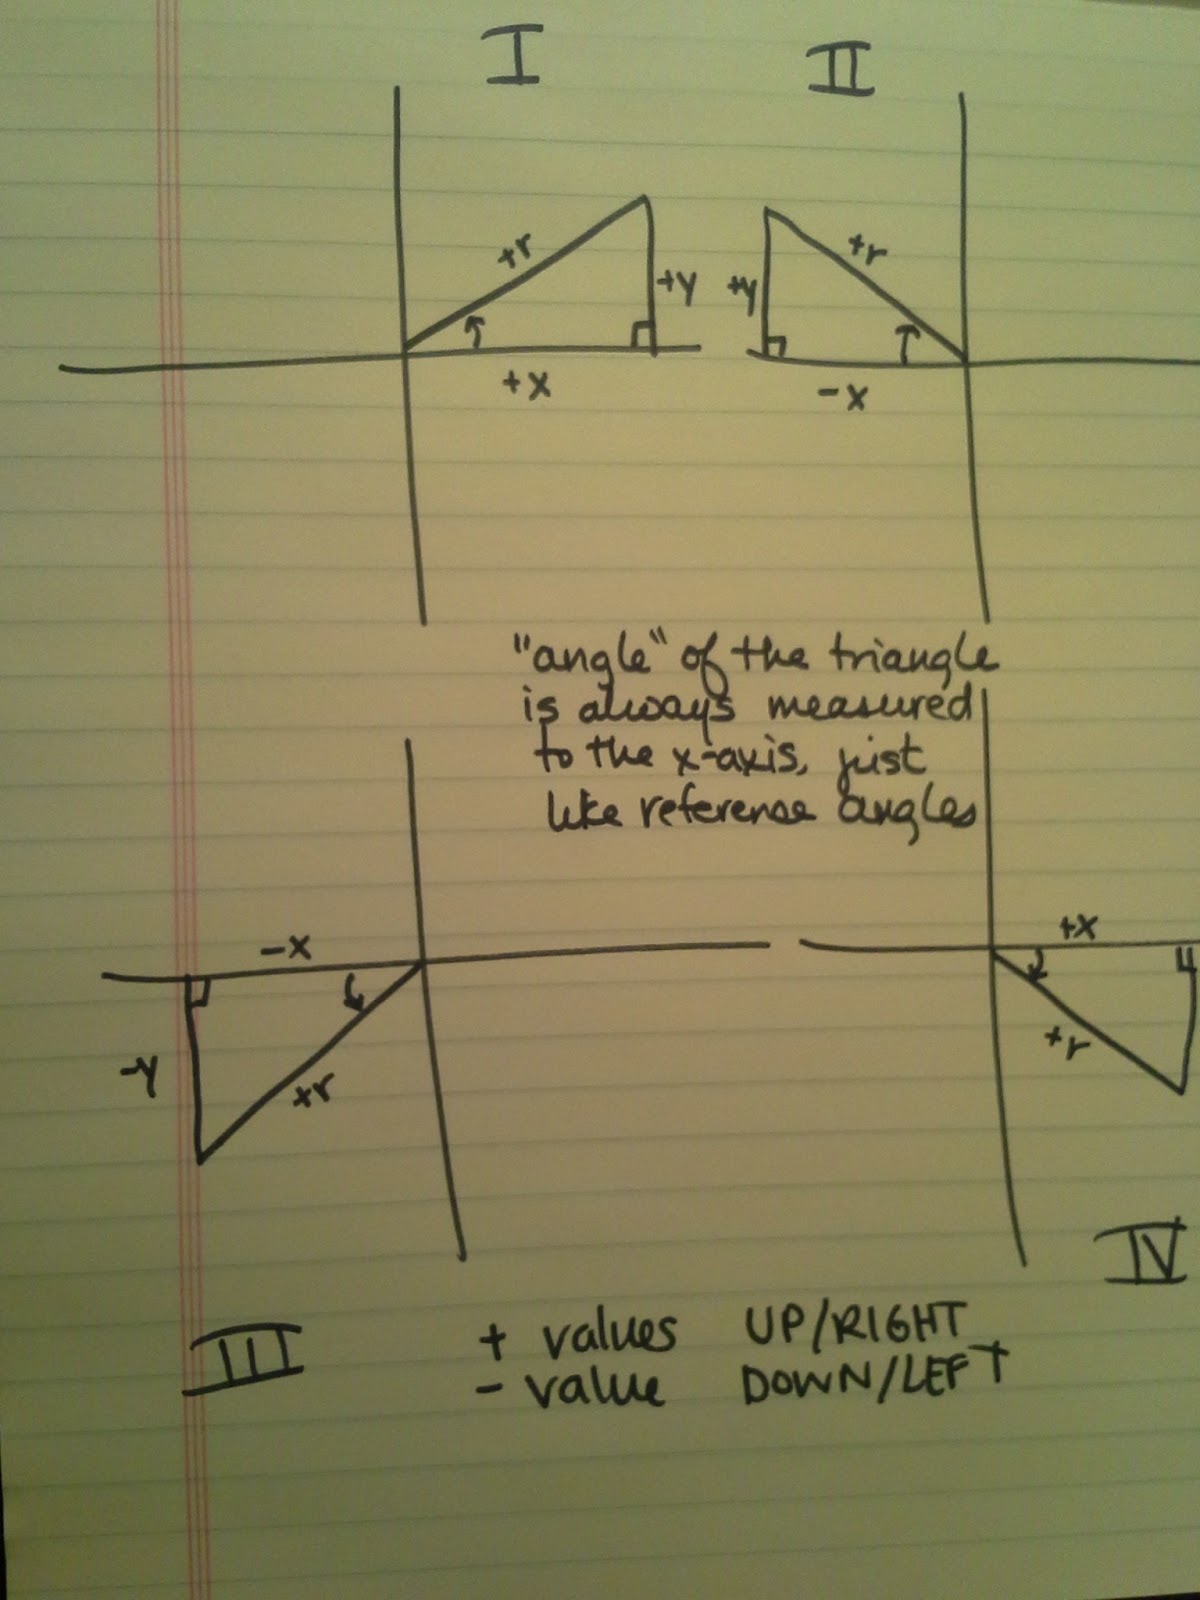 I
II
+r
+y
+x
+r
+y
-x
"angle" of the triangle
is always measured
to the x-axis, just
like reference angles
-x
-y
+r
+x
+r
III
IV
+ values UP/RIGHT
- value DOWN/LEFT